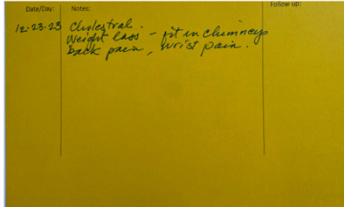 Date/Day: Notes: Follow up:
12-23-23 Cholestral.
Weight loss - fit in chimneys
Back pain, wrist pain.